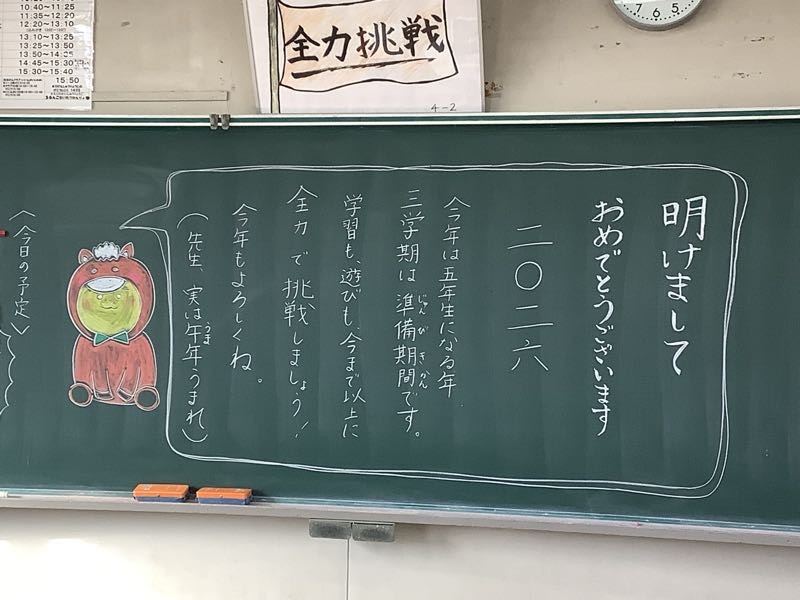 10:40～11:25
11:35～12:20
12:20～13:10
13:10～13:25
13:25～13:50
13:50～14:35
14:45～15:30
15:30～15:40
15:50
全力挑戦
4-2
7 6 5
明けまして
おめでとうございます
二〇二六
今年は五年生になる年
三学期は準備期間です。
じゅんびきかん
学習も、遊びも、今まで以上に
全力で挑戦しましょう！
今年もよろしくね。
（先生、実は午年うまれ）
うま
〈今日の予定〉